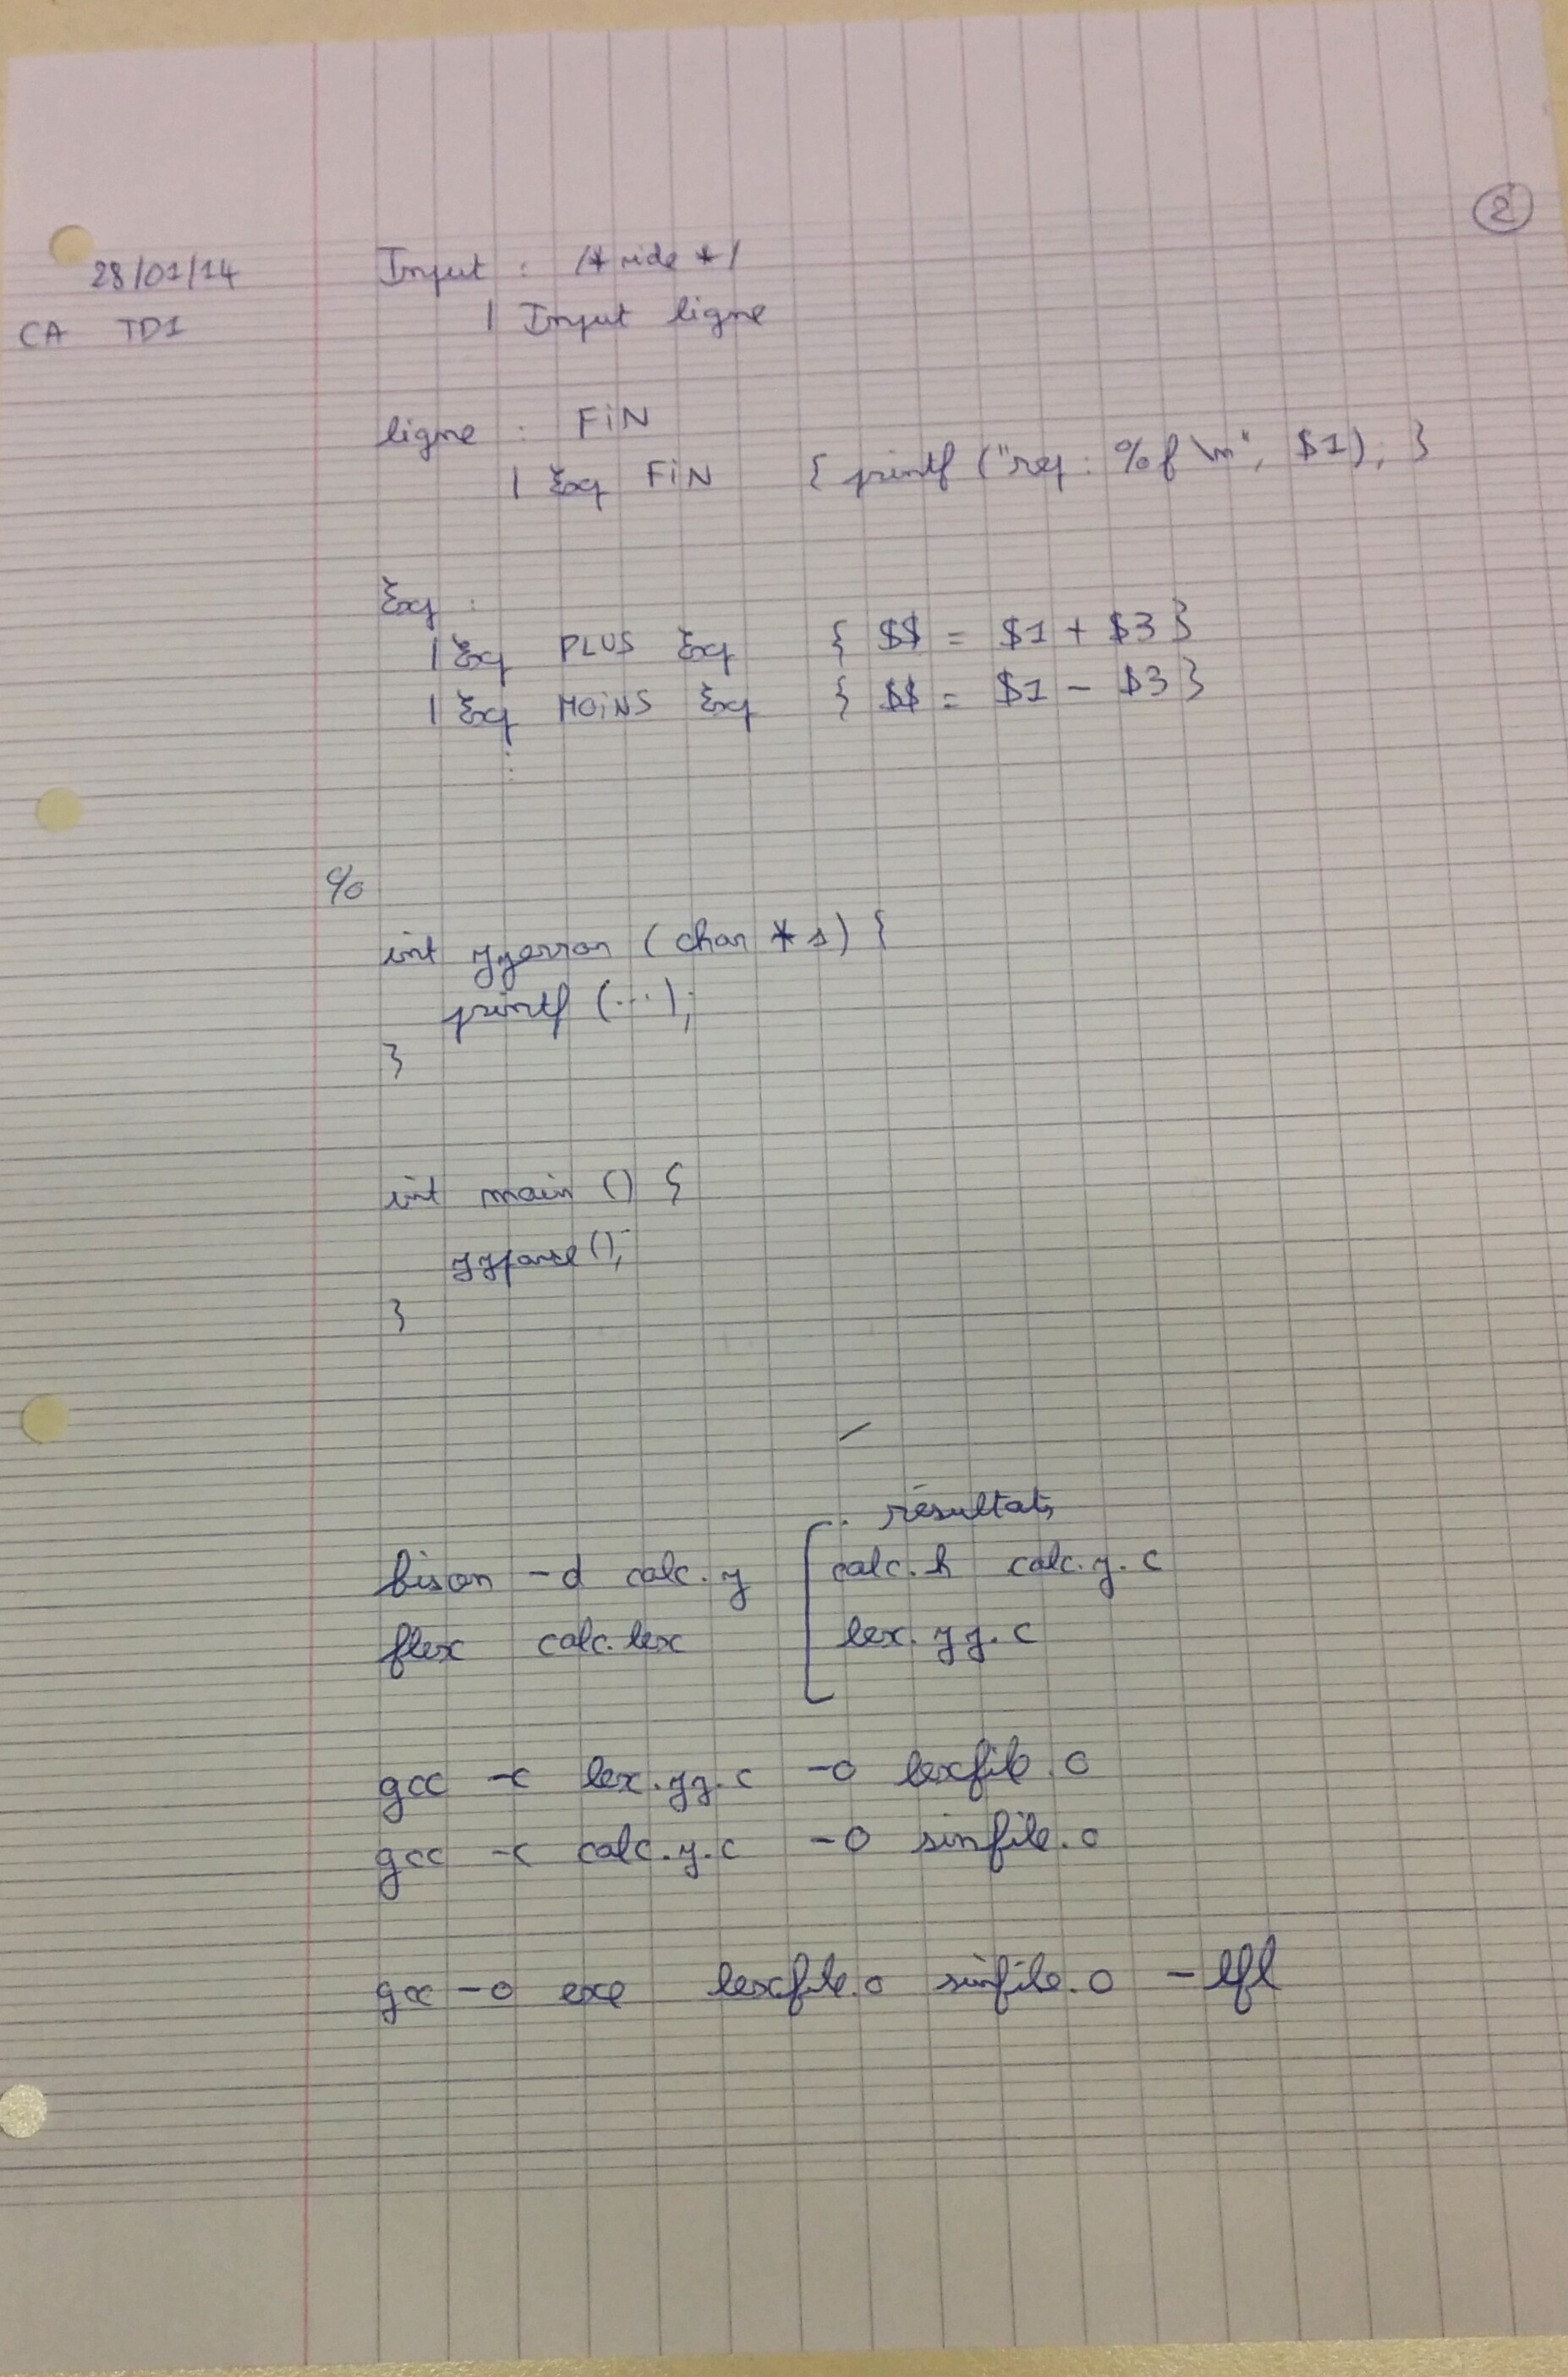 2
28/01/14
CA TD1
Input : /* vide */
| Input ligne
ligne : FiN
| Exp FiN { printf ("rep : %f \n", $1); }
Exp :
| Exp PLUS Exp { $$ = $1 + $3 }
| Exp MOiNS Exp { $$ = $1 - $3 }
:
%
int yyerror (char * s) {
printf (...);
}
int main () {
yyparse ();
}
résultats
bison -d calc.y calc.h calc.y.c
flex calc.lex lex.yy.c
gcc -c lex.yy.c -o lexfile.o
gcc -c calc.y.c -o sinfile.o
gcc -o exe lexfile.o sinfile.o -lfl